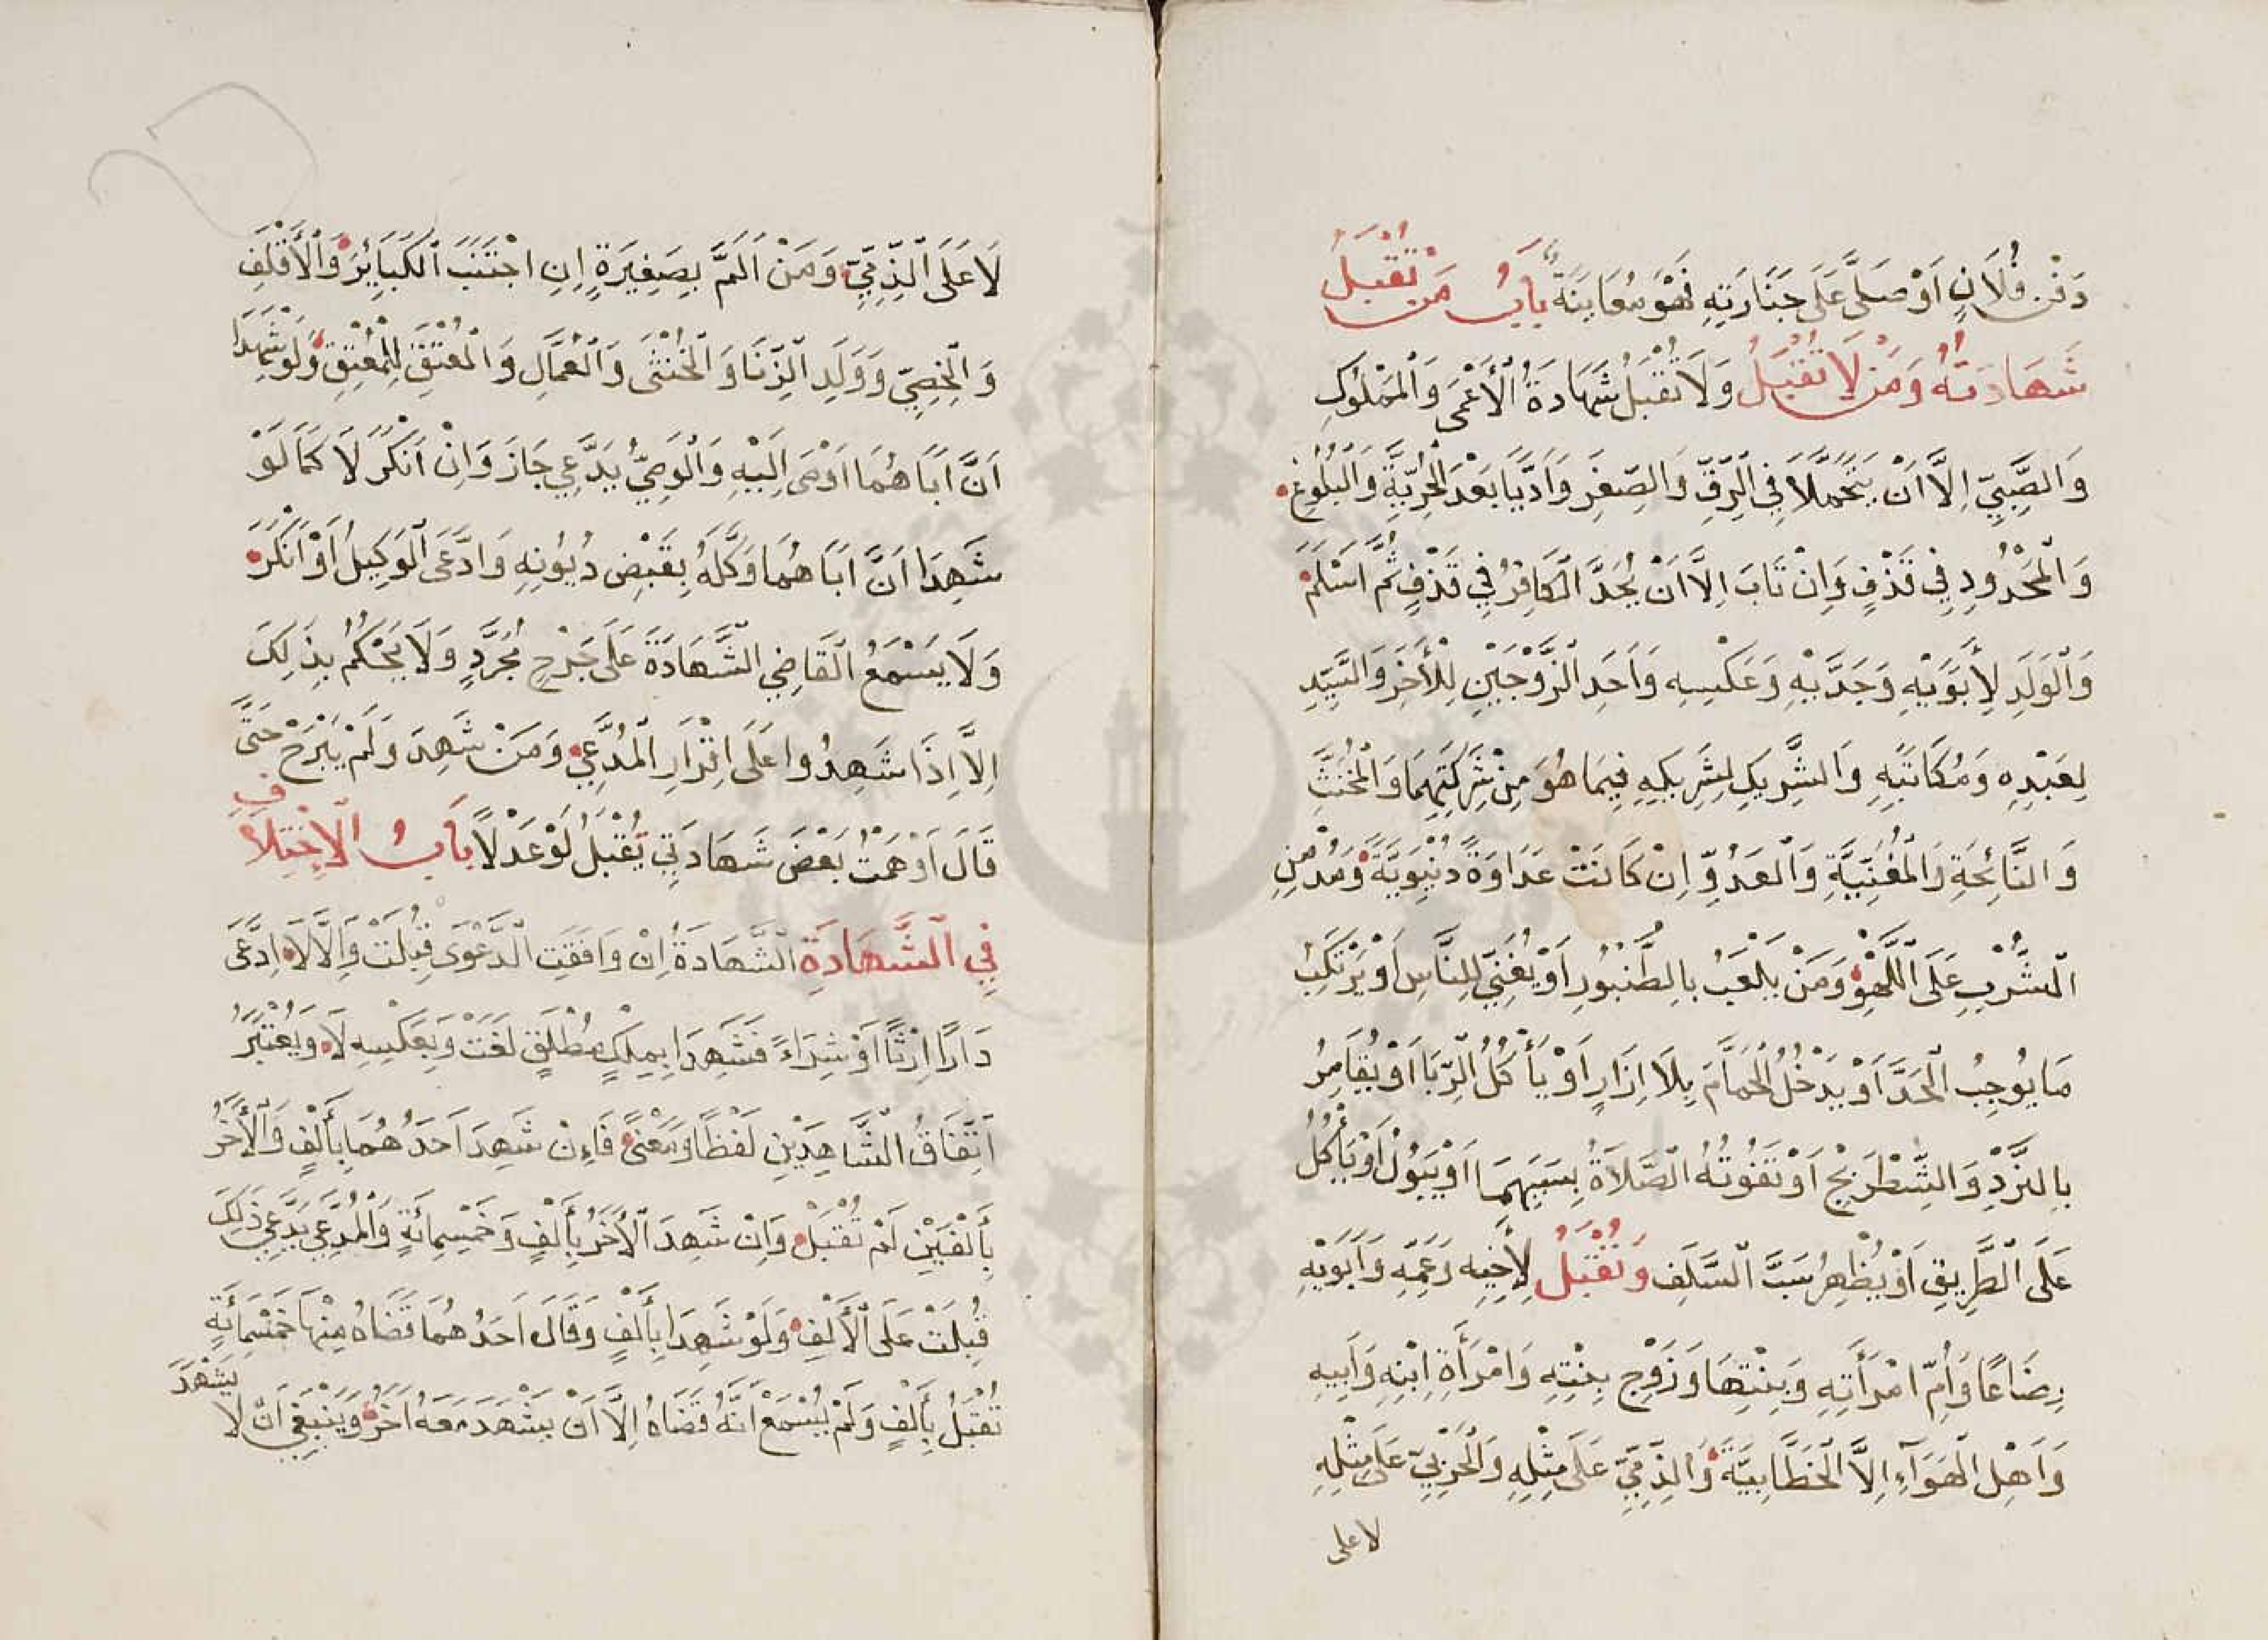 دَفْنَ فُلَانٍ اَوْ صَلَّى عَلَى جَنَازَتِهِ فَهُوَ مُعَايَنَةٌ بَابُ مَنْ تُقْبَلُ
شَهَادَتُهُ وَمَنْ لَا تُقْبَلُ وَلَا تُقْبَلُ شَهَادَةُ الْأَعْمَى وَالْمَمْلُوكِ
وَالصَّبِيِّ اِلَّا اَنْ يَتَحَمَّلَا فِي الرِّقِّ وَالصِّغَرِ وَاَدَّيَا بَعْدَ الْحُرِّيَّةِ وَالْبُلُوغِ
وَالْمَحْدُودِ فِي قَذْفٍ وَاِنْ تَابَ اِلَّا اَنْ يُحَدَّ الْكَافِرُ فِي قَذْفٍ ثُمَّ اَسْلَمَ
وَالْوَلَدِ لِأَبَوَيْهِ وَجَدَّيْهِ وَعَكْسِهِ وَاَحَدِ الزَّوْجَيْنِ لِلْأَخَرِ وَالسَّيِّدِ
لِعَبْدِهِ وَمُكَاتَبِهِ وَالشَّرِيكِ لِشَرِيكِهِ فِيمَا هُوَ مِنْ شَرِكَتِهِمَا وَالْمُخَنَّثِ
وَالنَّائِحَةِ وَالْمُغَنِّيَّةِ وَالْعَدُوِّ اِنْ كَانَتْ عَدَاوَةً دُنْيَوِيَّةً وَمُدْمِنِ
الشُّرْبِ عَلَى اللَّهْوِ وَمَنْ يَلْعَبُ بِالطُّنْبُورِ اَوْ يُغَنِّي لِلنَّاسِ اَوْ يَرْتَكِبُ
مَا يُوجِبُ الْحَدَّ اَوْ يَدْخُلُ الْحَمَّامَ بِلَا اِزَارٍ اَوْ يَأْكُلُ الرِّبَا اَوْ يُقَامِرُ
بِالنَّرْدِ وَالشِّطْرَنْجِ اَوْ تَفُوتُهُ الصَّلَاةُ بِسَبَبِهِمَا اَوْ يَبُولُ اَوْ يَأْكُلُ
عَلَى الطَّرِيقِ اَوْ يُظْهِرُ سَبَّ السَّلَفِ وَتُقْبَلُ لِأَخِيهِ وَعَمِّهِ وَاَبَوَيْهِ
رِضَاعًا وَاُمِّ امْرَأَتِهِ وَبِنْتِهَا وَزَوْجِ بِنْتِهِ وَامْرَأَةِ ابْنِهِ وَاَبِيهِ
وَاَهْلِ الْهَوَآءِ اِلَّا الْخَطَّابِيَّةَ وَالذِّمِّيِّ عَلَى مِثْلِهِ وَالْحَرْبِيِّ عَلَى مِثْلِهِ
لا على
لَا عَلَى الذِّمِّيِّ وَمَنْ اَلَمَّ بِصَغِيرَةٍ اِنِ اجْتَنَبَ الْكَبَائِرَ وَالْأَقْلَفِ
وَالْخَصِيِّ وَوَلَدِ الزِّنَا وَالْخُنْثَى وَالْعُمَّالِ وَالْمُعْتَقِ لِلْمُعْتِقِ وَلَوْ شَهِدَا
اَنَّ اَبَاهُمَا اَوْصَى اِلَيْهِ وَالْوَصِيُّ يَدَّعِي جَازَ وَاِنْ اَنْكَرَ لَا كَمَا لَوْ
شَهِدَا اَنَّ اَبَاهُمَا وَكَّلَهُ بِقَبْضِ دُيُونِهِ وَادَّعَى الْوَكِيلُ اَوْ اَنْكَرَ
وَلَا يَسْمَعُ الْقَاضِي الشَّهَادَةَ عَلَى جَرْحٍ مُجَرَّدٍ وَلَا يَحْكُمُ بِذَلِكَ
اِلَّا اِذَا شَهِدُوا عَلَى اِقْرَارِ الْمُدَّعِي وَمَنْ شَهِدَ وَلَمْ يَبْرَحْ حَتَّى
قَالَ اَوْهَمْتُ بَعْضَ شَهَادَتِي يُقْبَلُ لَوْ عَدْلًا بَابُ الْاِخْتِلَافِ
فِي الشَّهَادَةِ الشَّهَادَةُ اِنْ وَافَقَتِ الدَّعْوَى قُبِلَتْ وَاِلَّا لَا اِدَّعَى
دَارًا اِرْثًا اَوْ شِرَاءً فَشَهِدَا بِمِلْكٍ مُطْلَقٍ لَغَتْ وَبِعَكْسِهِ لَا وَيُعْتَبَرُ
اتِّفَاقُ الشَّاهِدَيْنِ لَفْظًا وَمَعْنًى فَاِنْ شَهِدَ اَحَدُهُمَا بِأَلْفٍ وَالْأَخَرُ
بِأَلْفَيْنِ لَمْ تُقْبَلْ وَاِنْ شَهِدَ الْأَخَرُ بِأَلْفٍ وَخَمْسِمِائَةٍ وَالْمُدَّعِي يَدَّعِي ذَلِكَ
قُبِلَتْ عَلَى الْأَلْفِ وَلَوْ شَهِدَا بِأَلْفٍ وَقَالَ اَحَدُهُمَا قَضَاهُ مِنْهَا خَمْسَمِائَةٍ
تُقْبَلُ بِأَلْفٍ وَلَمْ يُسْمَعْ اَنَّهُ قَضَاهُ اِلَّا اَنْ يَشْهَدَ مَعَهُ اَخَرُ وَيَنْبَغِي اَنْ لَا يَشْهَدَ